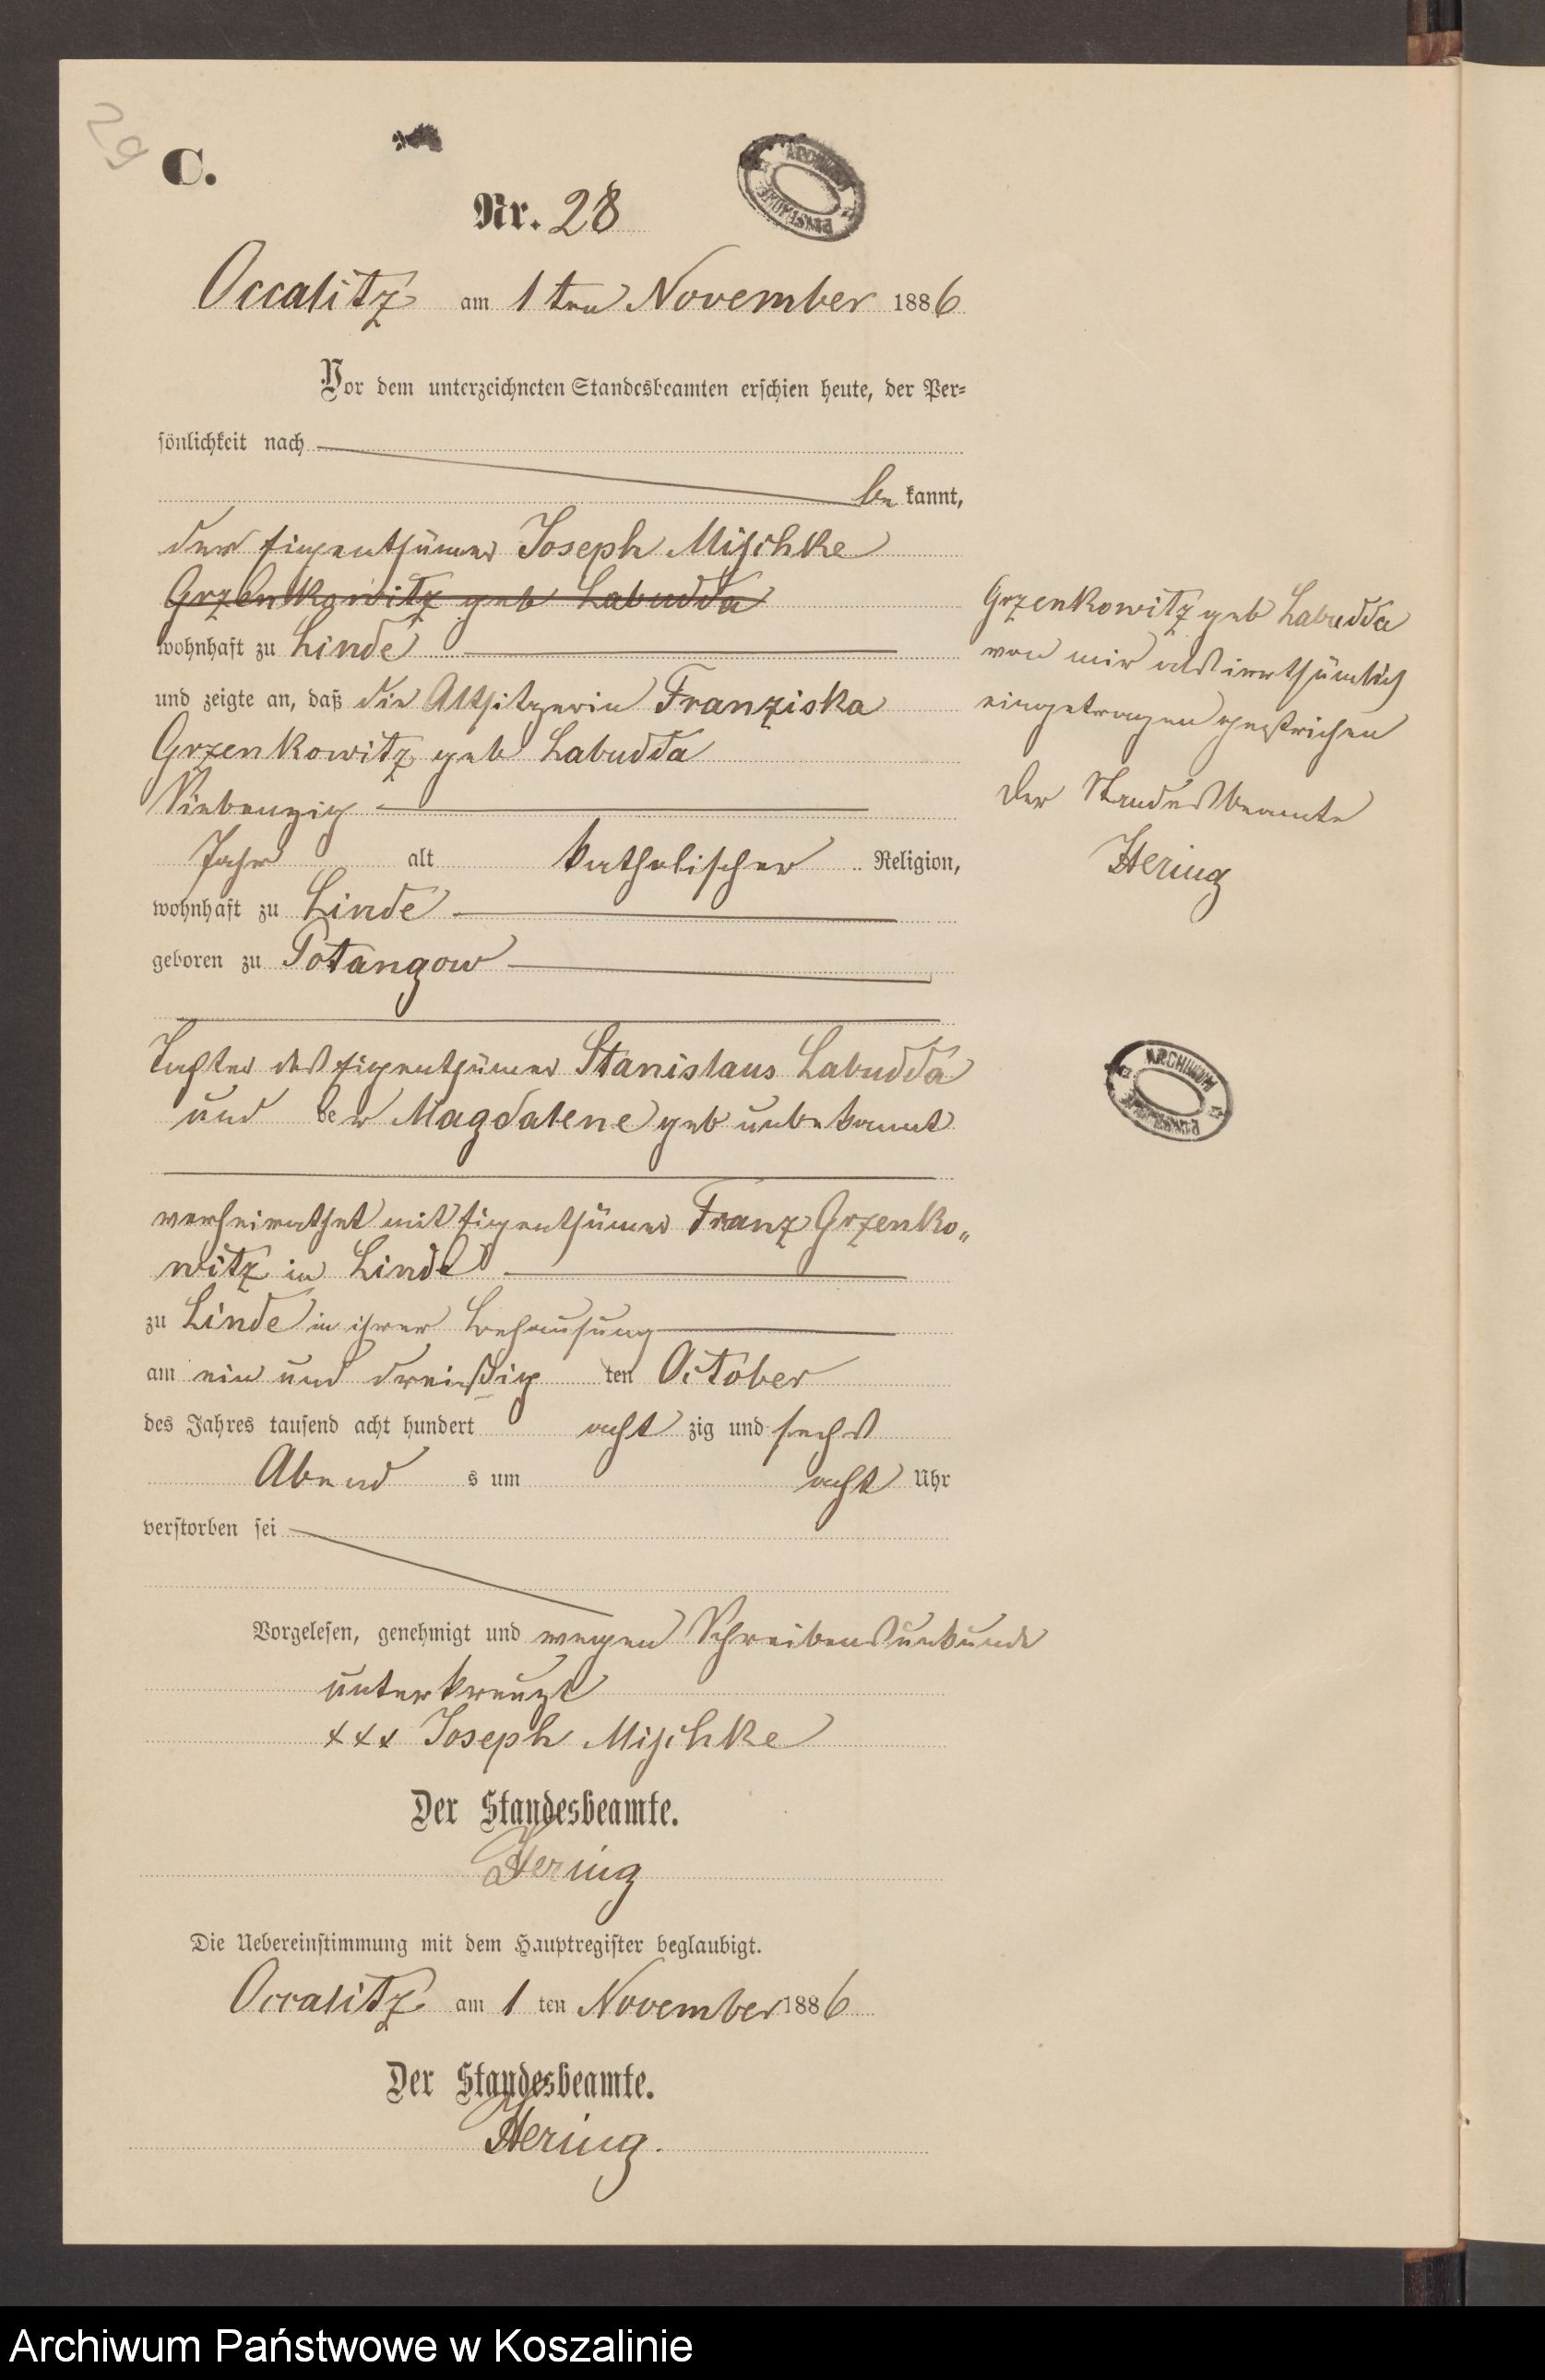 29
C.
ARCHIWUM
Nr. 28
Occalitz am 1ten November 1886
Vor dem unterzeichneten Standesbeamten erschien heute, der Per=
sönlichkeit nach
be kannt,
der Eigenthümer Joseph Mischke
Grzenkowitz geb Labudda
wohnhaft zu Linde
und zeigte an, daß die Altsitzerin Franziska
Grzenkowitz geb Labudda
Siebenzig
Jahr alt katholischer Religion,
wohnhaft zu Linde
geboren zu Potangow
Tochter des Eigenthümer Stanislaus Labudda
und der Magdalene geb unbekannt
verheirathet mit Eigenthümer Franz Grzenko„
witz in Linde
zu Linde in ihrer Behausung
am ein und dreißig ten October
des Jahres tausend acht hundert acht zig und sechs
Abend s um acht Uhr
verstorben sei
Vorgelesen, genehmigt und wegen Schreibensunkunde
unterkreuzt
xxx Joseph Mischke
Der Standesbeamte.
Hering
Die Uebereinstimmung mit dem Hauptregister beglaubigt.
Occalitz am 1 ten November 1886
Der Standesbeamte.
Hering.
Grzenkowitz geb Labudda
von mir als irrthümlich
eingetragen gestrichen
Der Standesbeamte
Hering
ARCHIWUM
Archiwum Państwowe w Koszalinie